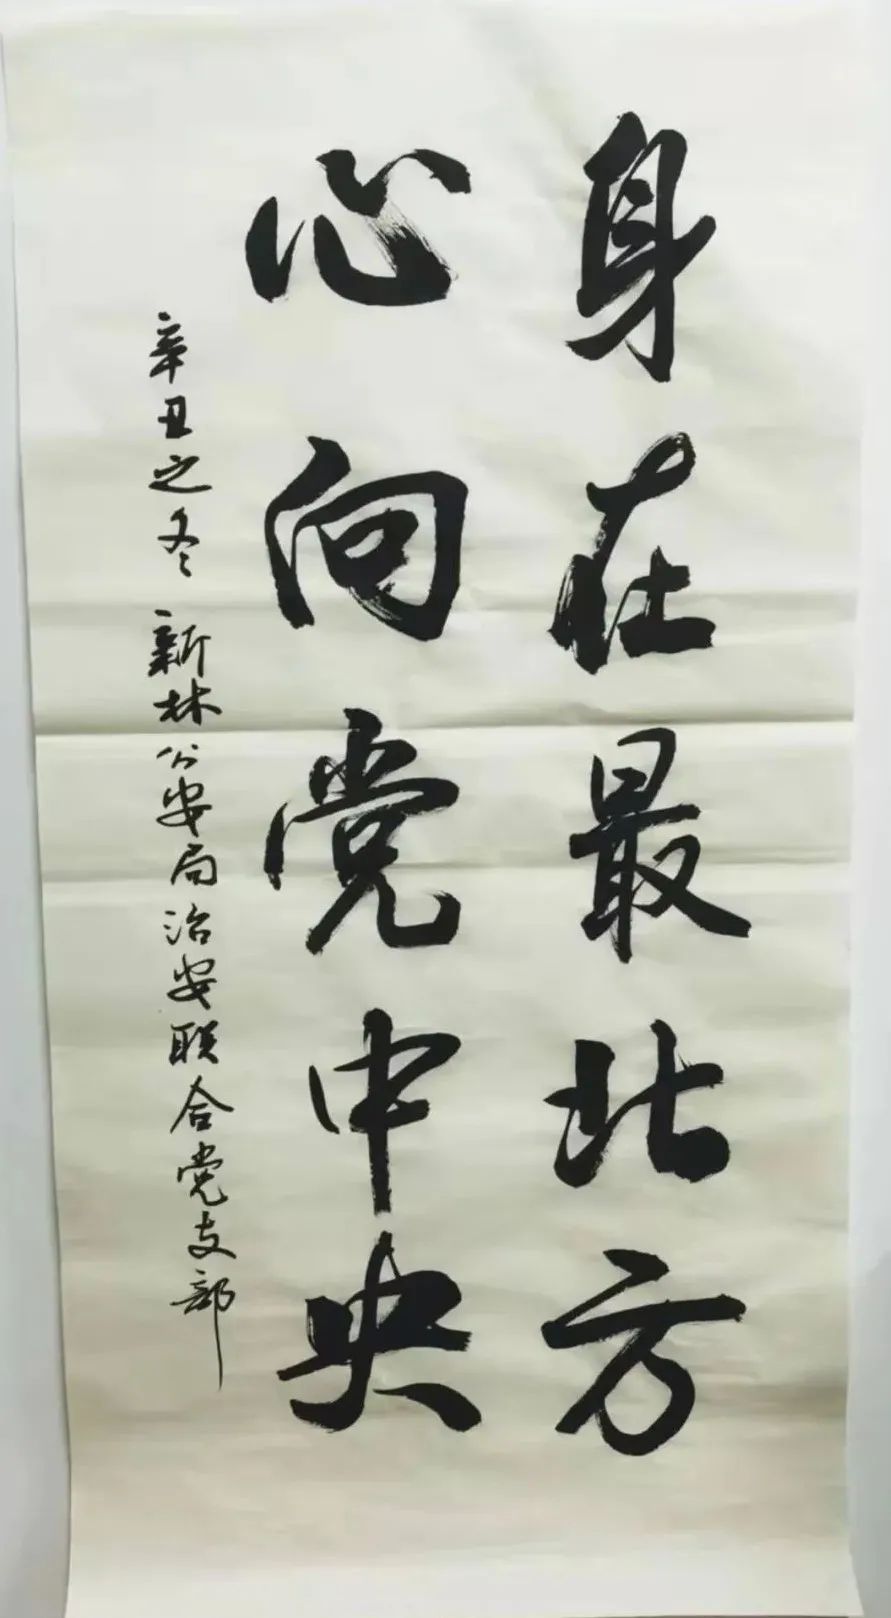 身在最北方
心向党中央
辛丑之冬 新林公安局治安联合党支部